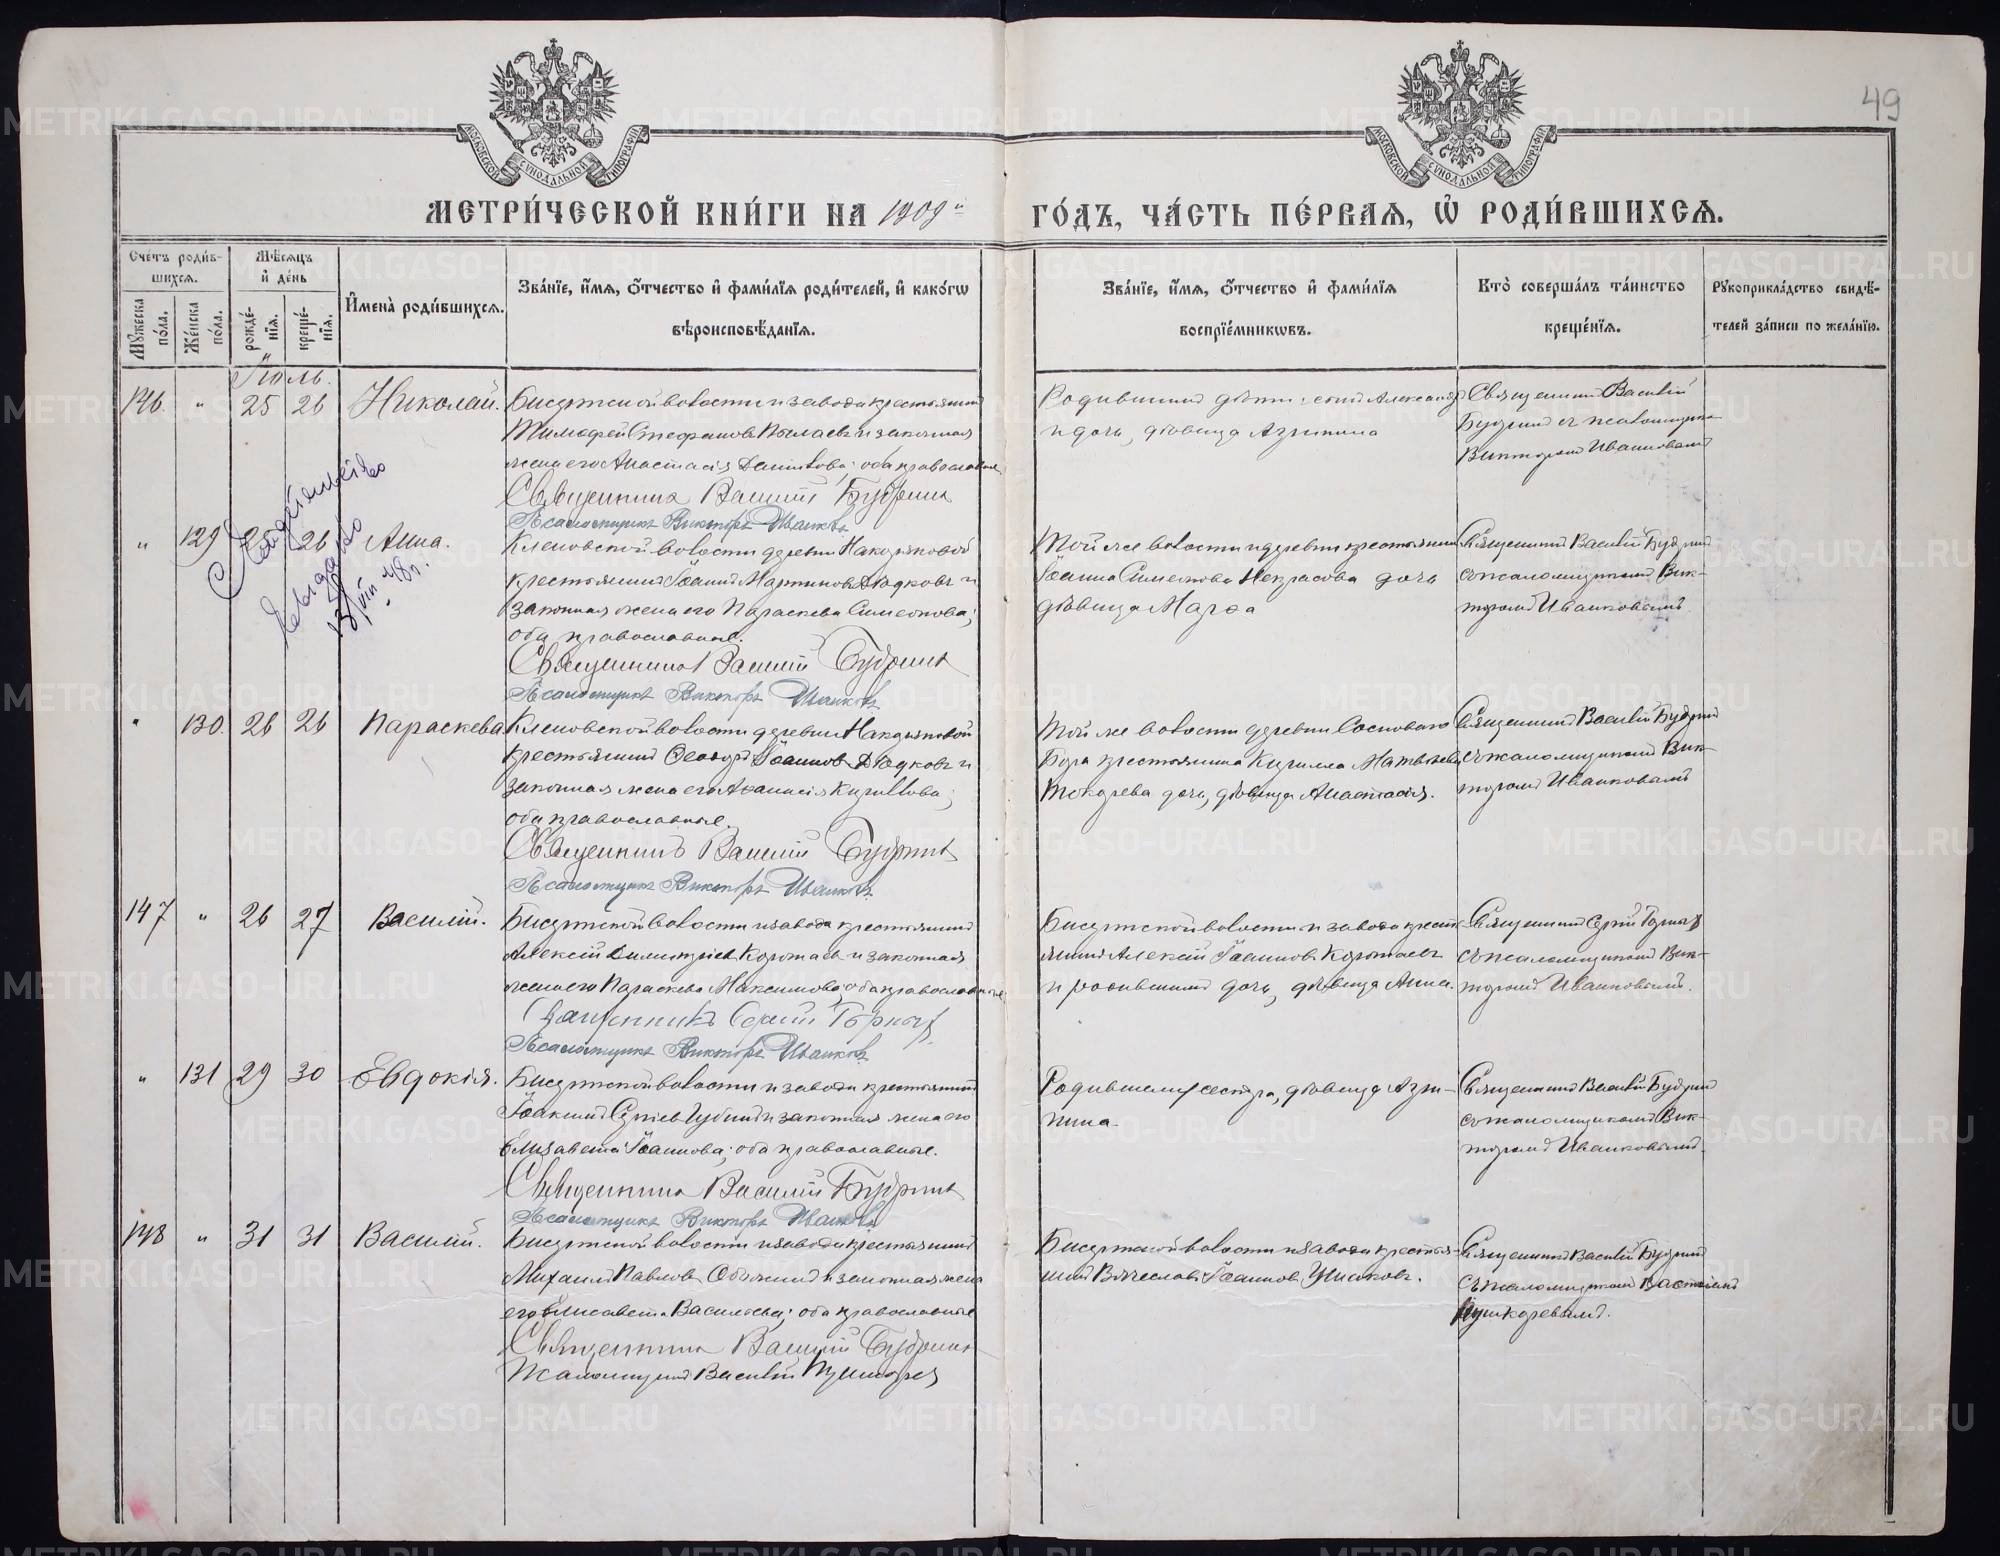 49
МОСКОВСКОЙ СѴНОДАЛЬНОЙ ТИПОГРАФІИ
МОСКОВСКОЙ СѴНОДАЛЬНОЙ ТИПОГРАФІИ
МЕТРИ́ЧЕСКОЙ КНИ́ГИ НА 1909й ГО́ДЪ, ЧА́СТЬ ПЕ́РВАѦ, Ѡ҆ РОДИ́ВШИХСѦ.
Сче́тъ роди́в-
шихсѧ.
Мꙋ́жеска по́ла.
Же́нска по́ла.
Мѣ́сѧцъ
и҆ де́нь
рожде́-
нїѧ.
креще́-
нїѧ.
И҆мена̀ роди́вшихсѧ.
Зва́нїе, и҆́мѧ, о҆́тчество и҆ фами́лїѧ роди́телей, и҆ како́гѡ
вѣроисповѣ́данїѧ.
Зва́нїе, и҆́мѧ, о҆́тчество и҆ фами́лїѧ
воспрїе́мникѡвъ.
Кто̀ соверша́лъ та́инство
креще́нїѧ.
Рꙋкоприкла́дство свидѣ́-
телей за́писи по жела́нїю.
Іюль.
146. " 25 26 Николай.
Бисертской волости и завода крестьянинъ
Тимофей Стефановъ и законная
жена его Анастасія Данилова; оба православные
Священникъ Василій Будринъ
Псаломщикъ Викторъ Иванковъ
Родившимъ дѣти: сынъ Александръ
и дочь, дѣвица Агрипина
Священникъ Василій
Будринъ съ псаломщикомъ
Викторомъ Иванковымъ
Свидѣтельство
выдано
13/VIII 48 г.
" 129 25 26 Анна.
Кленовской волости деревни Накоряковой
крестьянинъ Іоаннъ Мартиновъ Дюдковъ и
законная жена его Параскева Симеонова;
оба православные.
Священникъ Василій Будринъ
Псаломщикъ Викторъ Иванковъ
Той же волости и деревни крестьянина
Іоанна Симеонова Некрасова дочь
дѣвица Марѳа
Священникъ Василій Будринъ
съ псаломщикомъ Вик-
торомъ Иванковымъ.
" 130. 26 26 Параскева
Кленовской волости деревни Накоряковой
крестьянинъ Ѳеодоръ Іоанновъ Дюдковъ и
законная жена его Аѳанасія Кириллова;
оба православные.
Священникъ Василій Будринъ
Псаломщикъ Викторъ Иванковъ
Той же волости деревни Сосноваго
Бора крестьянина Кирилла Матвѣева
Токарева дочь, дѣвица Анастасія.
Священникъ Василій Будринъ
съ псаломщикомъ Вик-
торомъ Иванковымъ
147 " 26 27 Василій.
Бисертской волости и завода крестьянинъ
Алексій Димитріевъ Коротаевъ и законная
жена его Параскева Максимова; оба православные
Священникъ Сергій Горныхъ
Псаломщикъ Викторъ Иванковъ
Бисертской волости и завода кресть-
янинъ Алексій Іоанновъ Коротаевъ
и родившимъ дочь, дѣвица Анна.
Священникъ Сергій Горныхъ
съ псаломщикомъ Вик-
торомъ Иванковымъ.
" 131 29 30 Евдокія.
Бисертской волости и завода крестьянинъ
Іоакимъ Сергіевъ Чубинъ и законная жена его
Елизавета Іоаннова; оба православные.
Священникъ Василій Будринъ
Псаломщикъ Викторъ Иванковъ
Родившейся сестра, дѣвица Агри-
пина.
Священникъ Василій Будринъ
съ псаломщикомъ Вик-
торомъ Иванковымъ.
148 " 31 31 Василій.
Бисертской волости и завода крестьянинъ
Михаилъ Павловъ и законная жена
его Елисавета Васильева; оба православные
Священникъ Василій Будринъ
Псаломщикъ Василій Пушкарев
Бисертской волости и завода крестья-
нинъ Вячеславъ Іоанновъ Ушаковъ.
Священникъ Василій Будринъ
съ псаломщикомъ Василіемъ
Пушкаревымъ.